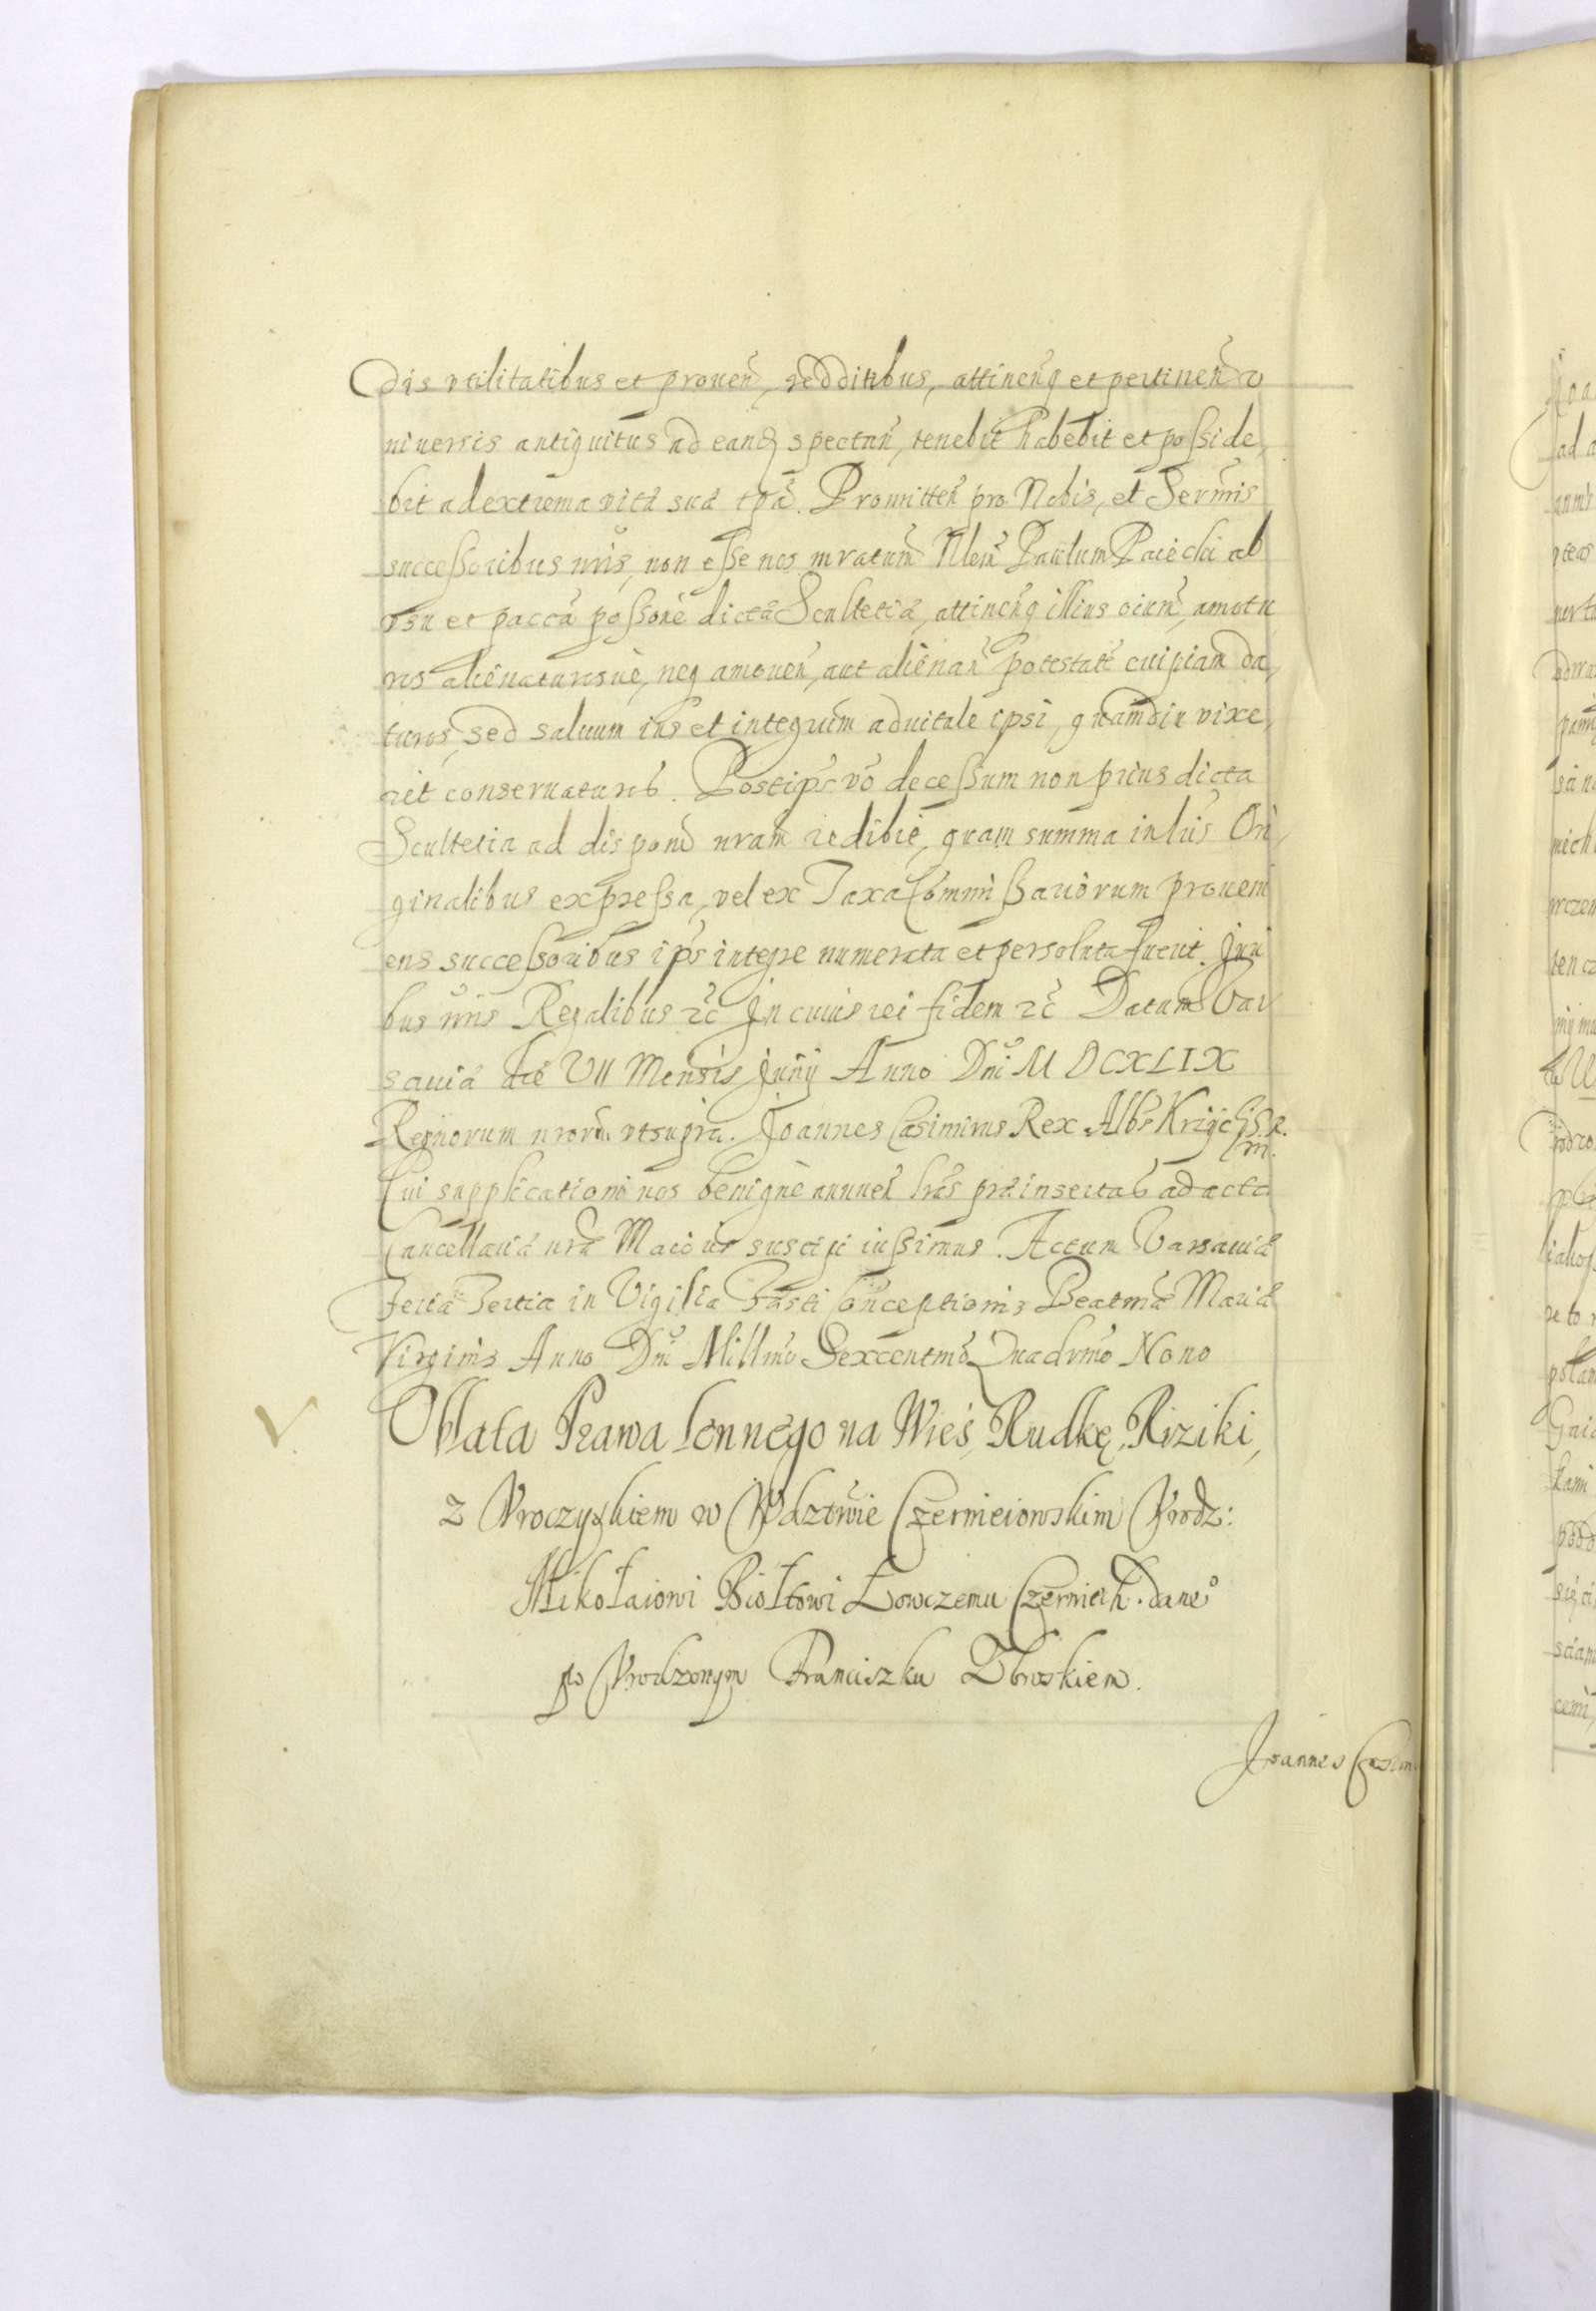 dis vtilitatibus et prouen, redditibus, attinenq et pertinen v
niuersis antiquitus ad eand spectan, tenebit habebit et posside,
bit ad extrema vitæ suæ tpã. Promitten pro Nobis, et Sermis
successoribus nris, non esse nos mraturũ Nlem Paulum Paiecki ab
vsu et paccã possone dictæ Scultetiæ, attinenq illius oium, amotu
ros alienaturosue, neq amouen, aut alienan potestatẽ cuipiam da,
turos, sed saluum ius et integrum aduitale ipsi, quamdiu vixe,
rit conseruaturos. Post ips vo decessum non prius dicta
Scultetia ad dispond nram redibit, quam summa in lris Ori,
ginalibus expressa, vel ex Taxa Commissariorum proueni
ens successoribus ips integre numerata et persoluta fuerit. Juri
bus nris Regalibus &c̃ In cuius rei fidem &c̃ Datum Var
sauiæ die VII Mensis Junij Anno Dni M DCXLIX
Regnorum nrorũ vtsupra. Joannes Casimirus Rex Albs Krzyc S. R.
m.
Cui supplicationi nos benignè annuen lras præinsertas ad acta
Cancellariæ nræ Maioris suscipi iussimus. Actum Varsauiæ
Feria Tertia in Vigilia Festi Conceptionis Beatmæ Mariæ
Virginis Anno Dni Millmo Sexcentmo Quadrmo Nono
Oblata Prawa lennego na Wieś Rudkę, Riziki,
z Vroczyskiem w Wdztwie Czernieiowskim Vrodz:
Mikołaiowi Biołtowi Łowczemu Czernieh. dane°
po Vrodzonym Franciszku Zbroskiem.
Joannes Casim